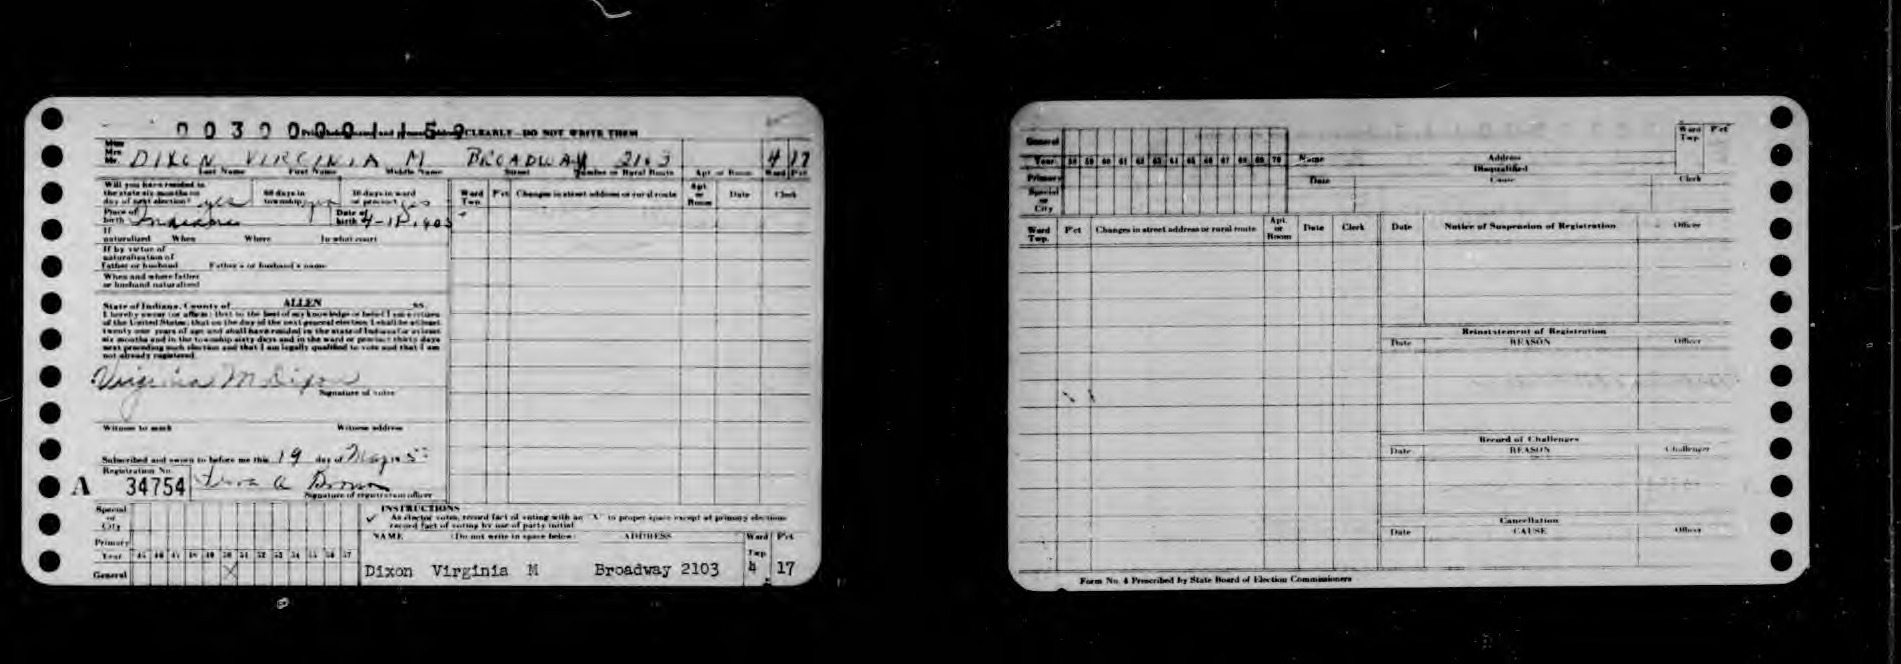 00300001159
CLEARLY—DO NOT WRITE THEM
Miss
Mrs
Mr. DIXON VIRGINIA M BROADWAY 2103 4 17
Last Name First Name Middle Name Street Number or Rural Route Apt or Room Ward Pct
Will you have resided in
the state six months on
day of next election? yes
60 days in
township yes
30 days in ward
or precinct yes
Ward
Twp. Pct Changes in street address or rural route Apt
or
Room Date Clerk
Place of
birth Indiana
Date of
birth
If
naturalized When Where In what court
If by virtue of
naturalization of
Father or husband Father's or husband's name
When and where father
or husband naturalized
State of Indiana, County of ALLEN ss.
I hereby swear (or affirm) that to the best of my knowledge or belief I am a citizen
of the United States; that on the day of the next general election I shall be at least
twenty one years of age and shall have resided in the state of Indiana for at least
six months and in the township sixty days and in the ward or precinct thirty days
next preceding such election and that I am legally qualified to vote and that I am
not already registered.
Virginia M Dixon
Signature of voter
Witness to mark Witness address
Subscribed and sworn to before me this 19 day of May 19
Registration No.
A 34754 A Brown
Signature of registration officer
Special
or
City
Primary
Year 45 46 47 48 49 50 51 52 53 54 55 56 57
General X
INSTRUCTIONS
As elector votes, record fact of voting with an "X" in proper space except at primary elections
record fact of voting by use of party initial
NAME (Do not write in space below) ADDRESS Ward
Twp Pct
Dixon Virginia M Broadway 2103 4 17
General
Year 58 59 60 61 62 63 64 65 66 67 68 69 70
Primary
Special
or
City
Name Address Ward
Twp. Pct
Disqualified
Date Cause Clerk
Ward
Twp. Pct Changes in street address or rural route Apt.
or
Room Date Clerk
Date Notice of Suspension of Registration Officer
Reinstatement of Registration
Date REASON Officer
Record of Challenges
Date REASON Challenger
Cancellation
Date CAUSE Officer
Form No. 4 Prescribed by State Board of Election Commissioners